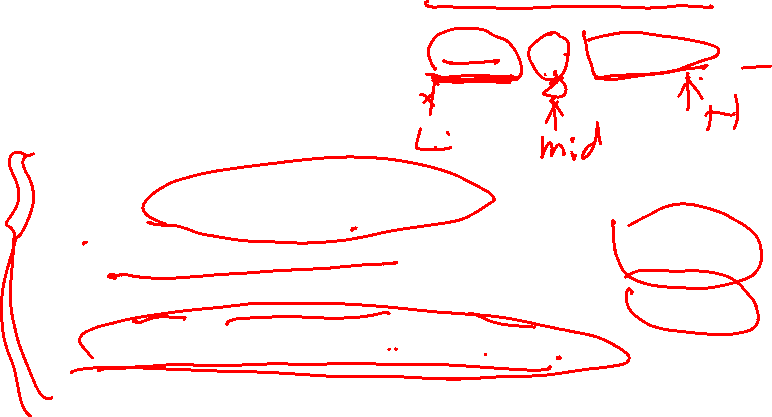 Li mid H